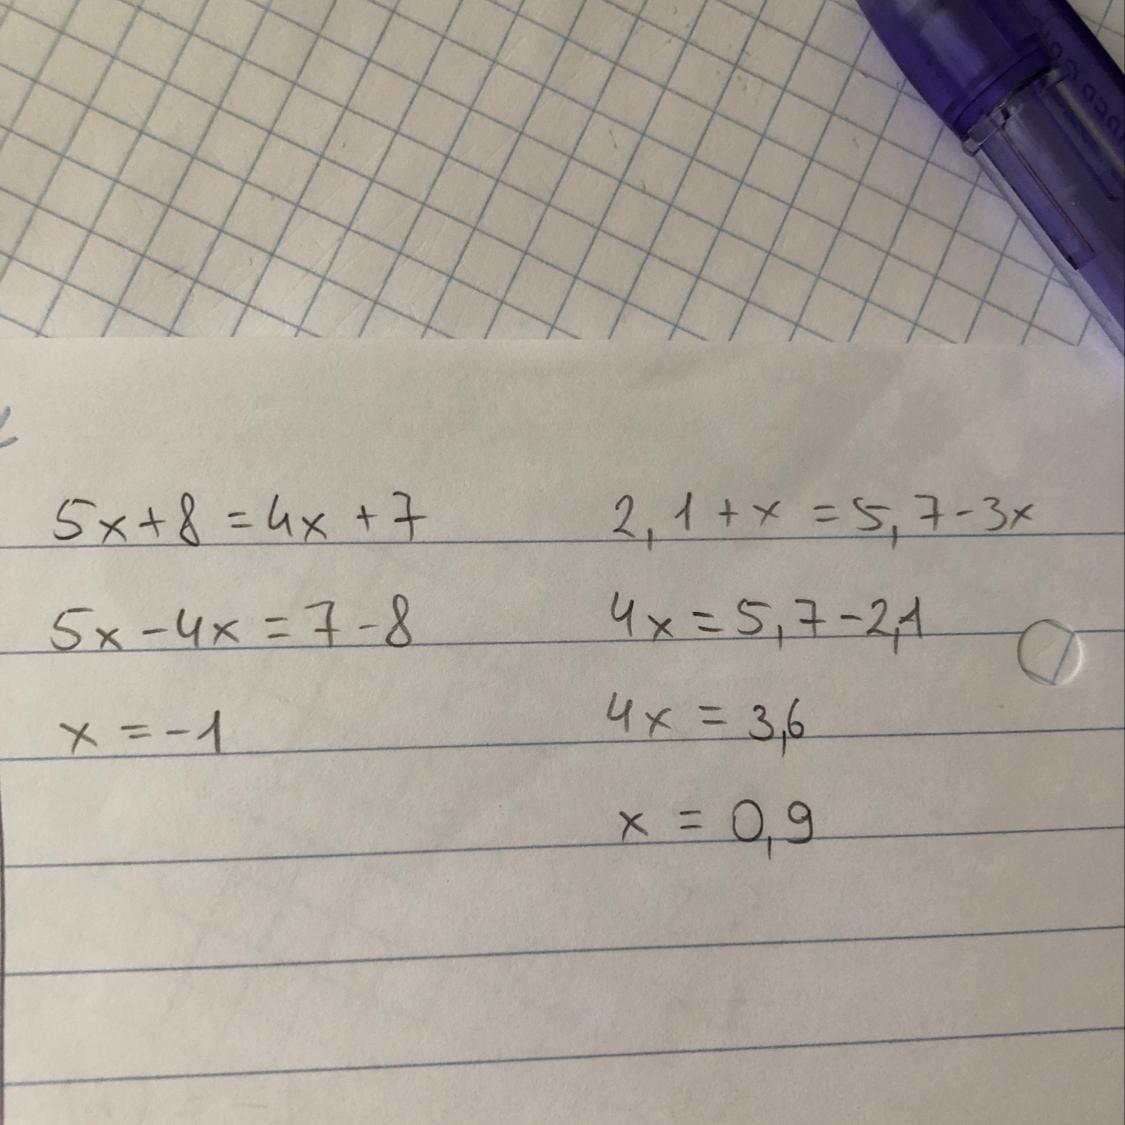 5x+8=4x+7
5x-4x=7-8
x=-1
2,1+x=5,7-3x
4x=5,7-2,1
4x=3,6
x=0,9